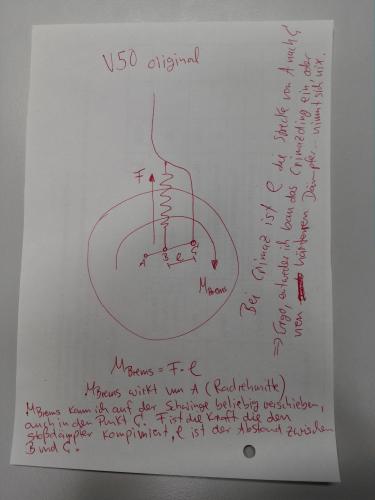 V50 original
F
A
B
C
l
M Brems
M Brems = F · l
M Brems wirkt um A (Radmitte)
M Brems kann ich auf der Schwinge beliebig verschieben,
auch in den Punkt C. F ist die Kraft die den
Stoßdämpfer komprimiert, l ist der Abstand zwischen
B und C.
Bei Grimaz ist l die Strecke von A nach C
=> Ergo, entweder ich bau das Grimazding ein oder
nen härteren Dämpfer... nimmt sich nix.